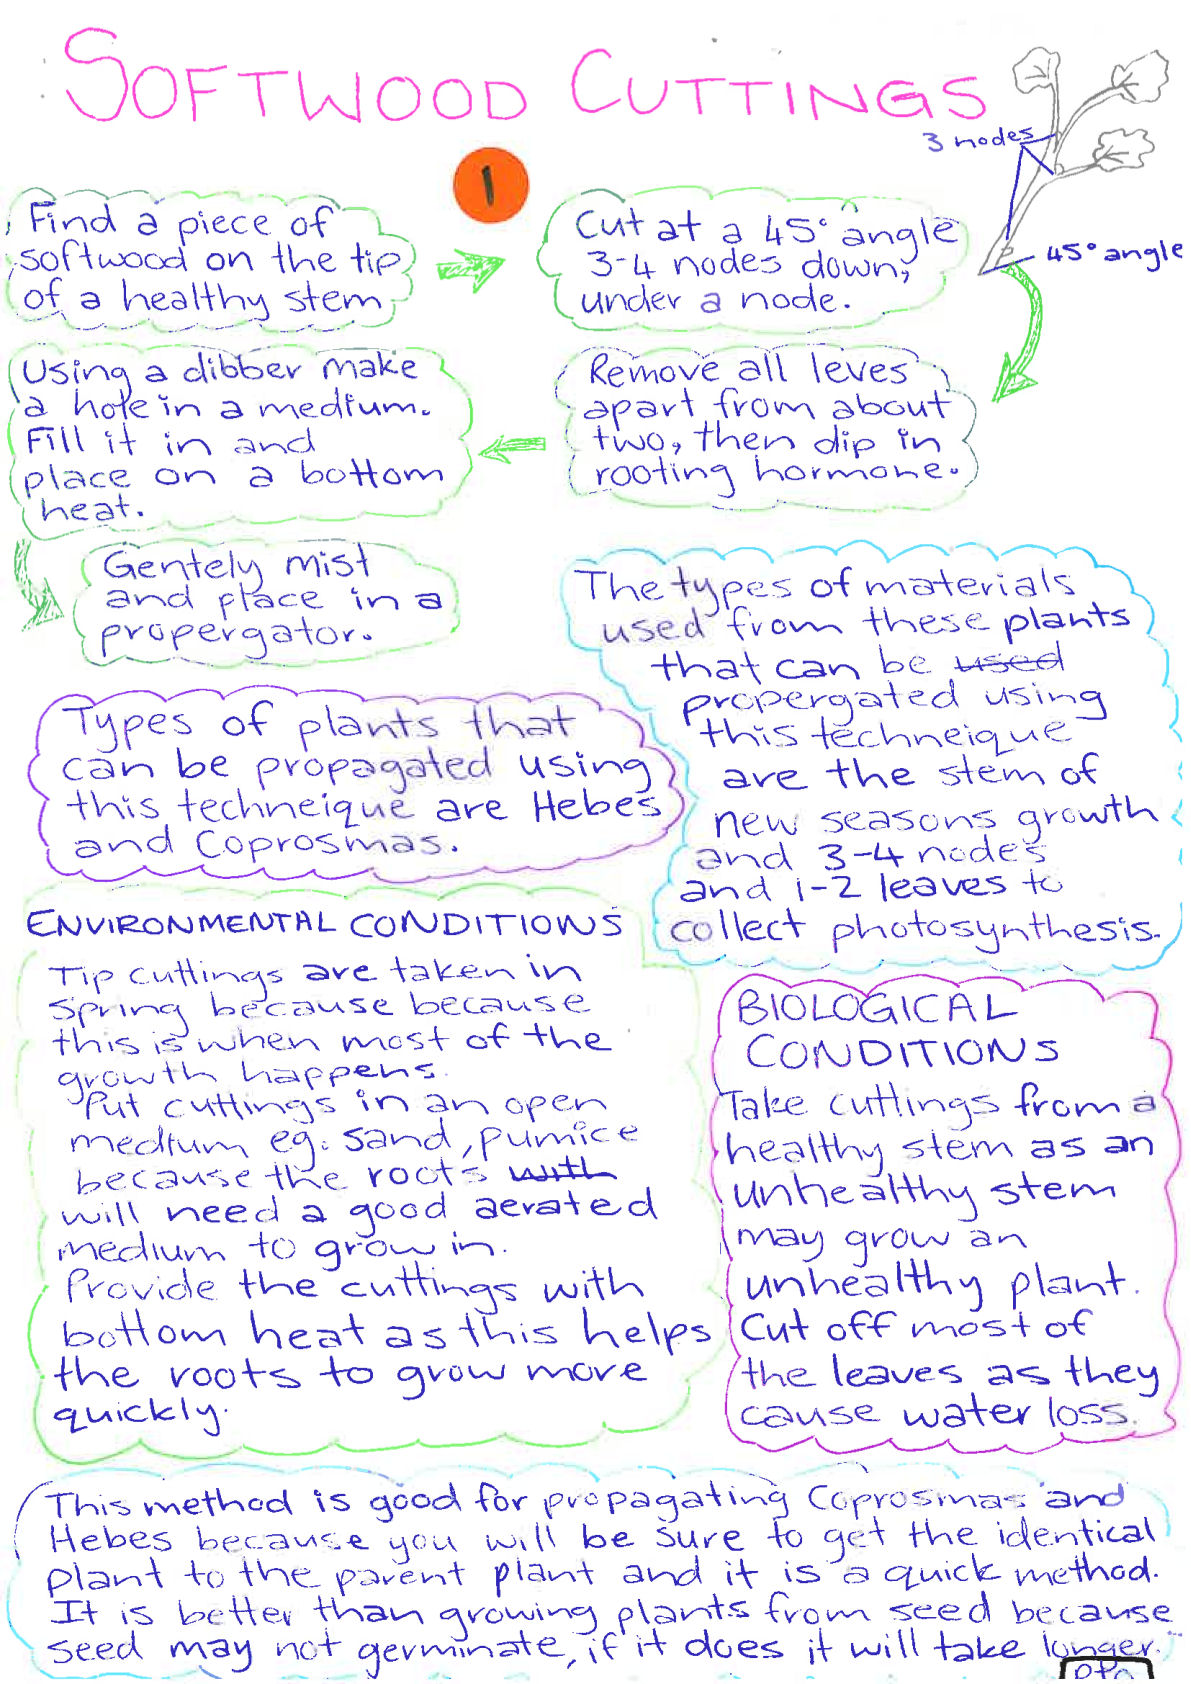 SOFTWOOD CUTTINGS
3 nodes
45° angle
1
Find a piece of
softwood on the tip
of a healthy stem
Cut at a 45° angle
3-4 nodes down,
under a node.
Remove all leves
apart from about
two, then dip in
rooting hormone.
Using a dibber make
a hole in a medium.
Fill it in and
place on a bottom
heat.
Gentely mist
and place in a
propergator.
The types of materials
used from these plants
that can be used
propergated using
this techneique
are the stem of
new seasons growth
and 3-4 nodes
and 1-2 leaves to
collect photosynthesis.
Types of plants that
can be propagated using
this techneique are Hebes
and Coprosmas.
ENVIRONMENTAL CONDITIONS
Tip cuttings are taken in
spring because because
this is when most of the
growth happens.
Put cuttings in an open
medium eg. sand, pumice
because the roots with
will need a good aerated
medium to grow in.
Provide the cuttings with
bottom heat as this helps
the roots to grow more
quickly.
BIOLOGICAL
CONDITIONS
Take cuttings from a
healthy stem as an
unhealthy stem
may grow an
unhealthy plant.
Cut off most of
the leaves as they
cause water loss.
This method is good for propagating Coprosmas and
Hebes because you will be sure to get the identical
plant to the parent plant and it is a quick method.
It is better than growing plants from seed because
seed may not germinate, if it does it will take longer.
PTO